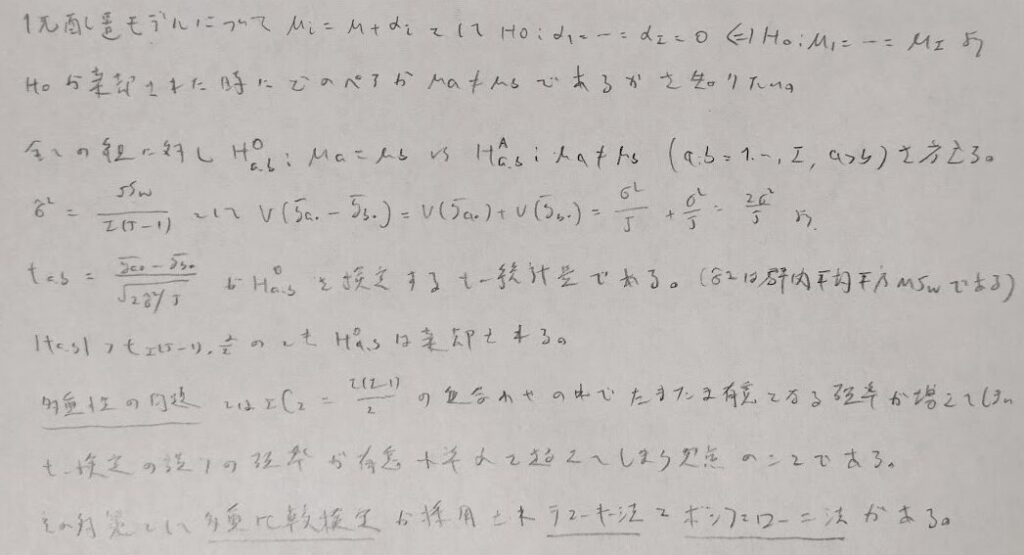 1元配置モデルについて μi = μ+αi として H0: α1=‐‐=αI=0 ⇔ H0: μ1=‐‐=μI より
H0が棄却された時にどのペアが μa≠μb であるかを知りたい。
全ての組に対し H^0_{a,b}: μa=μb vs H^A_{a,b}: μa≠μb (a,b=1,‐‐,I, a>b) を考える。
σ̂² = SSw / I(J-1) として V(ȳa. - ȳb.) = V(ȳa.) + V(ȳb.) = σ²/J + σ²/J = 2σ²/J より
t_{a,b} = (ȳa. - ȳb.) / √(2σ̂²/J) が H^0_{a,b} を検定する t-統計量である。(σ̂²は群内平均平方 MSw である)
|t_{a,b}| > t_{I(J-1), α/2} のとき H^0_{a,b} は棄却される。
多重性の問題とは IC2 = I(I-1)/2 の組合わせの中でたまたま有意となる確率が増えてしまい
t-検定の誤りの確率が有意水準αを超えてしまう欠点のことである。
その対策として多重比較検定が採用されテューキー法とボンフェローニ法がある。